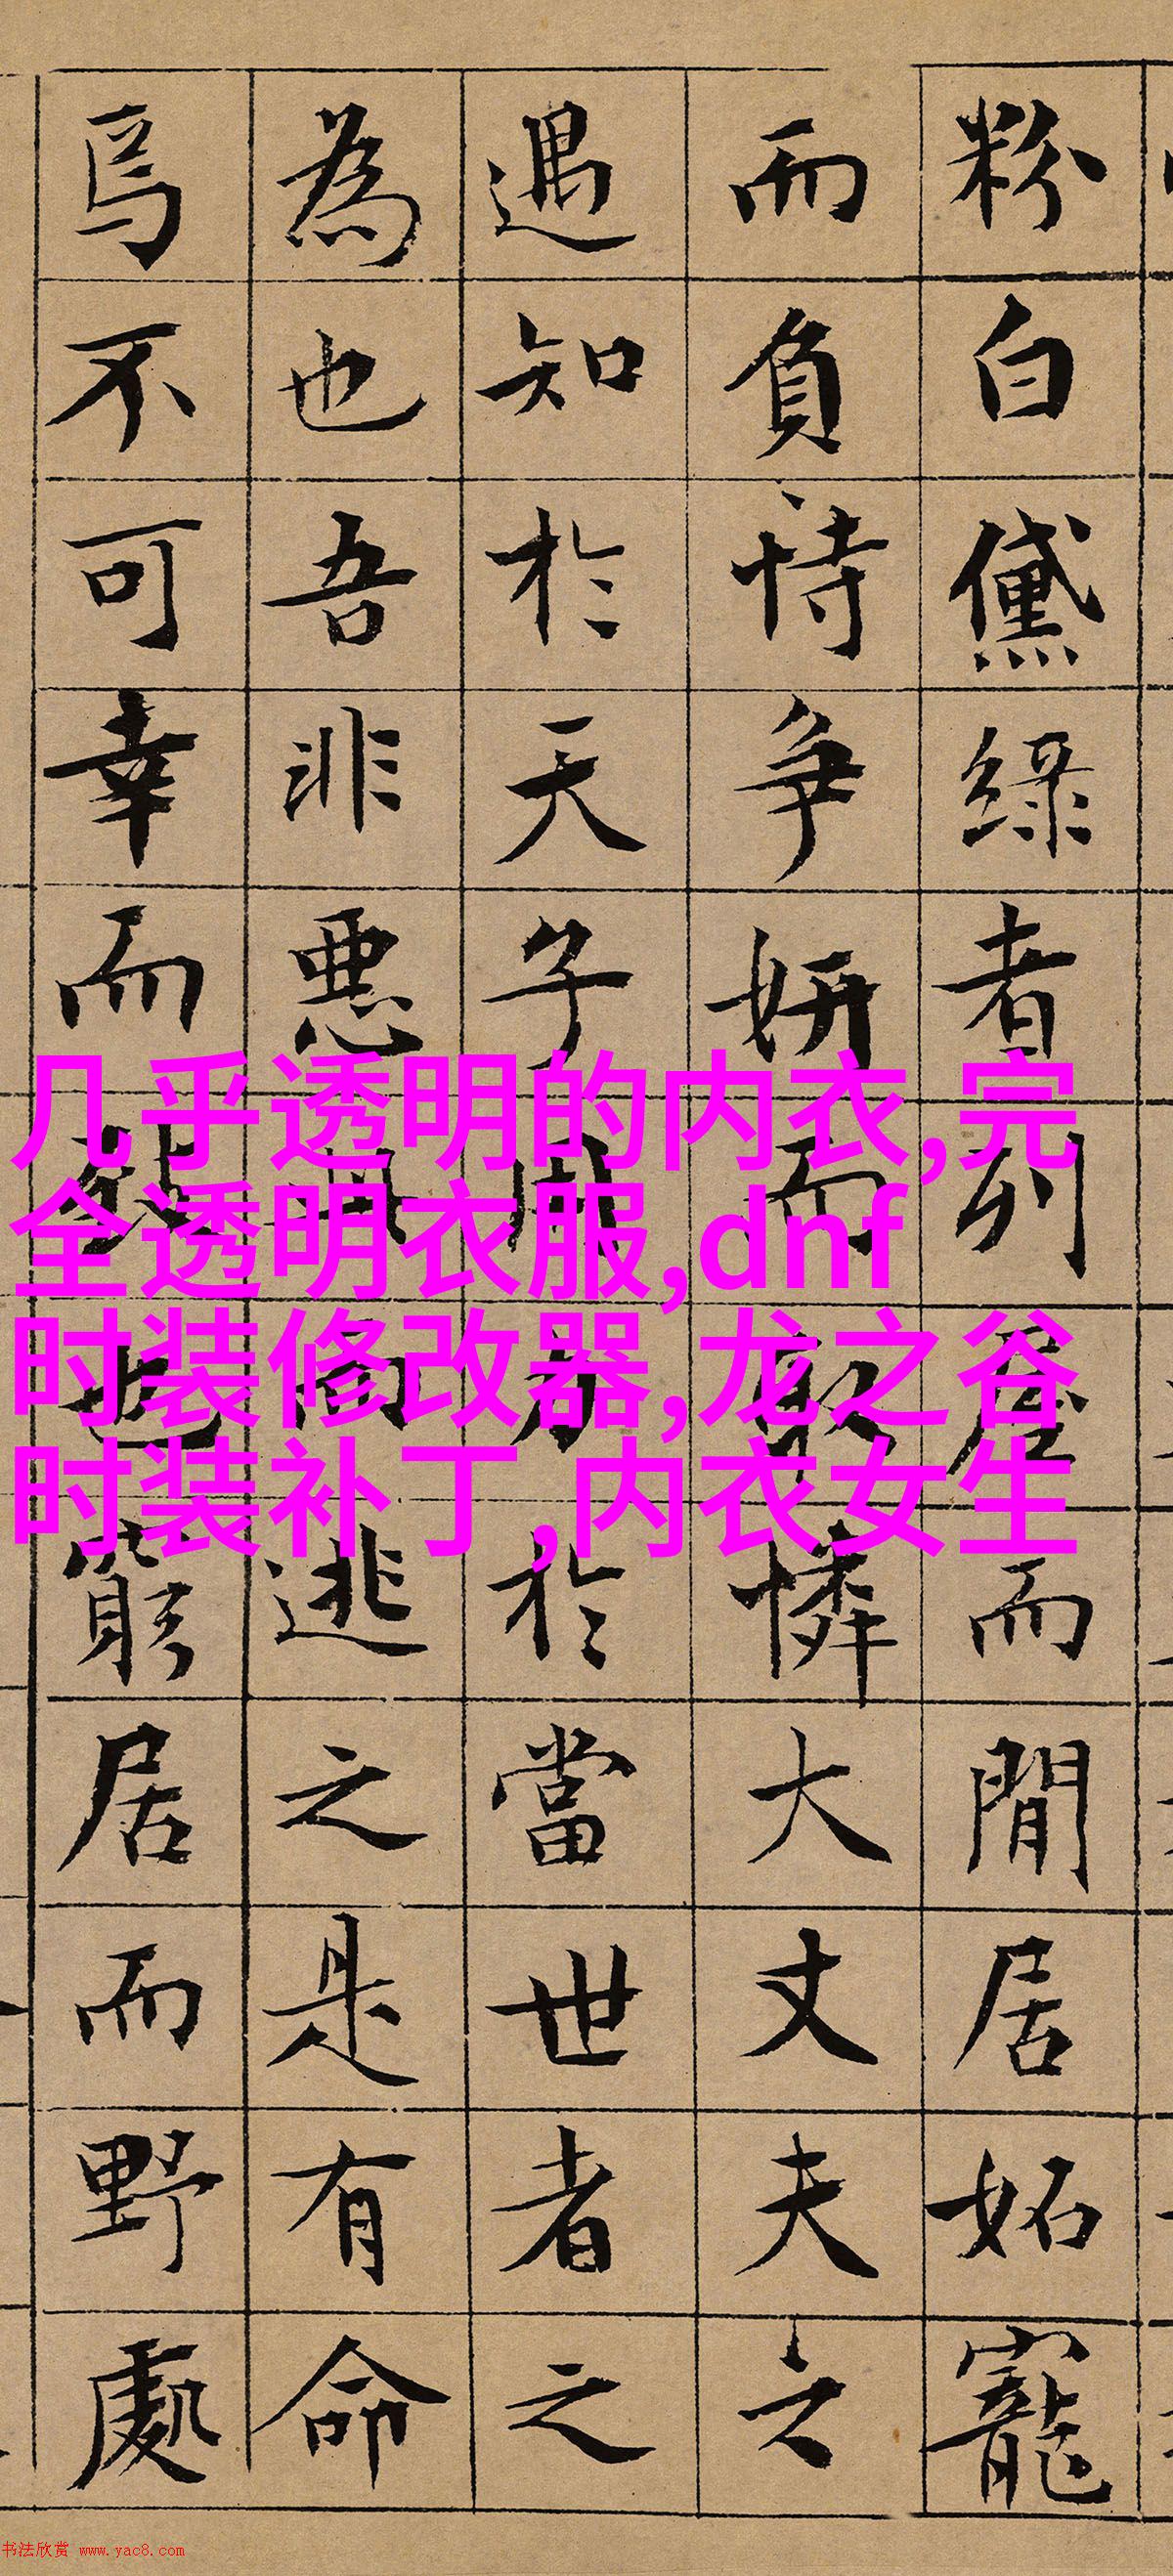 粉白黛綠者列屋而閒居妬寵
而負恃争妍而取憐大丈夫之
遇知於天子用力於當世者之
為也吾非悪此而逃之是有命
焉不可幸而致也窮居而野處
几乎透明的内衣,完
全透明衣服,dnf
时装修改器,龙之谷
时装补丁,内衣女生
书法欣赏 www.yac8.com